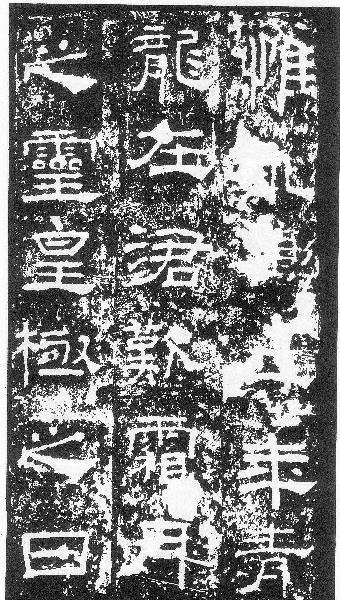 惟年青
龍在涒歎霜月
之靈皇極之日